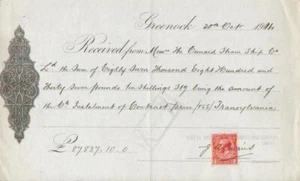 Greenock 20th Oct 1914
Received from Mess. The Cunard Steam Ship Co
Ld. the Sum of Eighty Seven Thousand Eight Hundred and
Thirty Seven pounds Ten Shillings Stg being the amount of the
6th Instalment of Contract price Transylvania
£87837.10.0